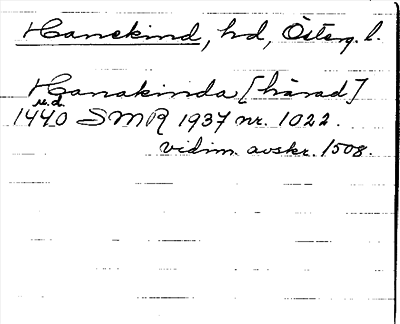 Hanekind, hd, Österg. l.
Hanakinda [härad]
u.d.
1440 SMR 1937 nr. 1022.
vidim. avskr. 1508.